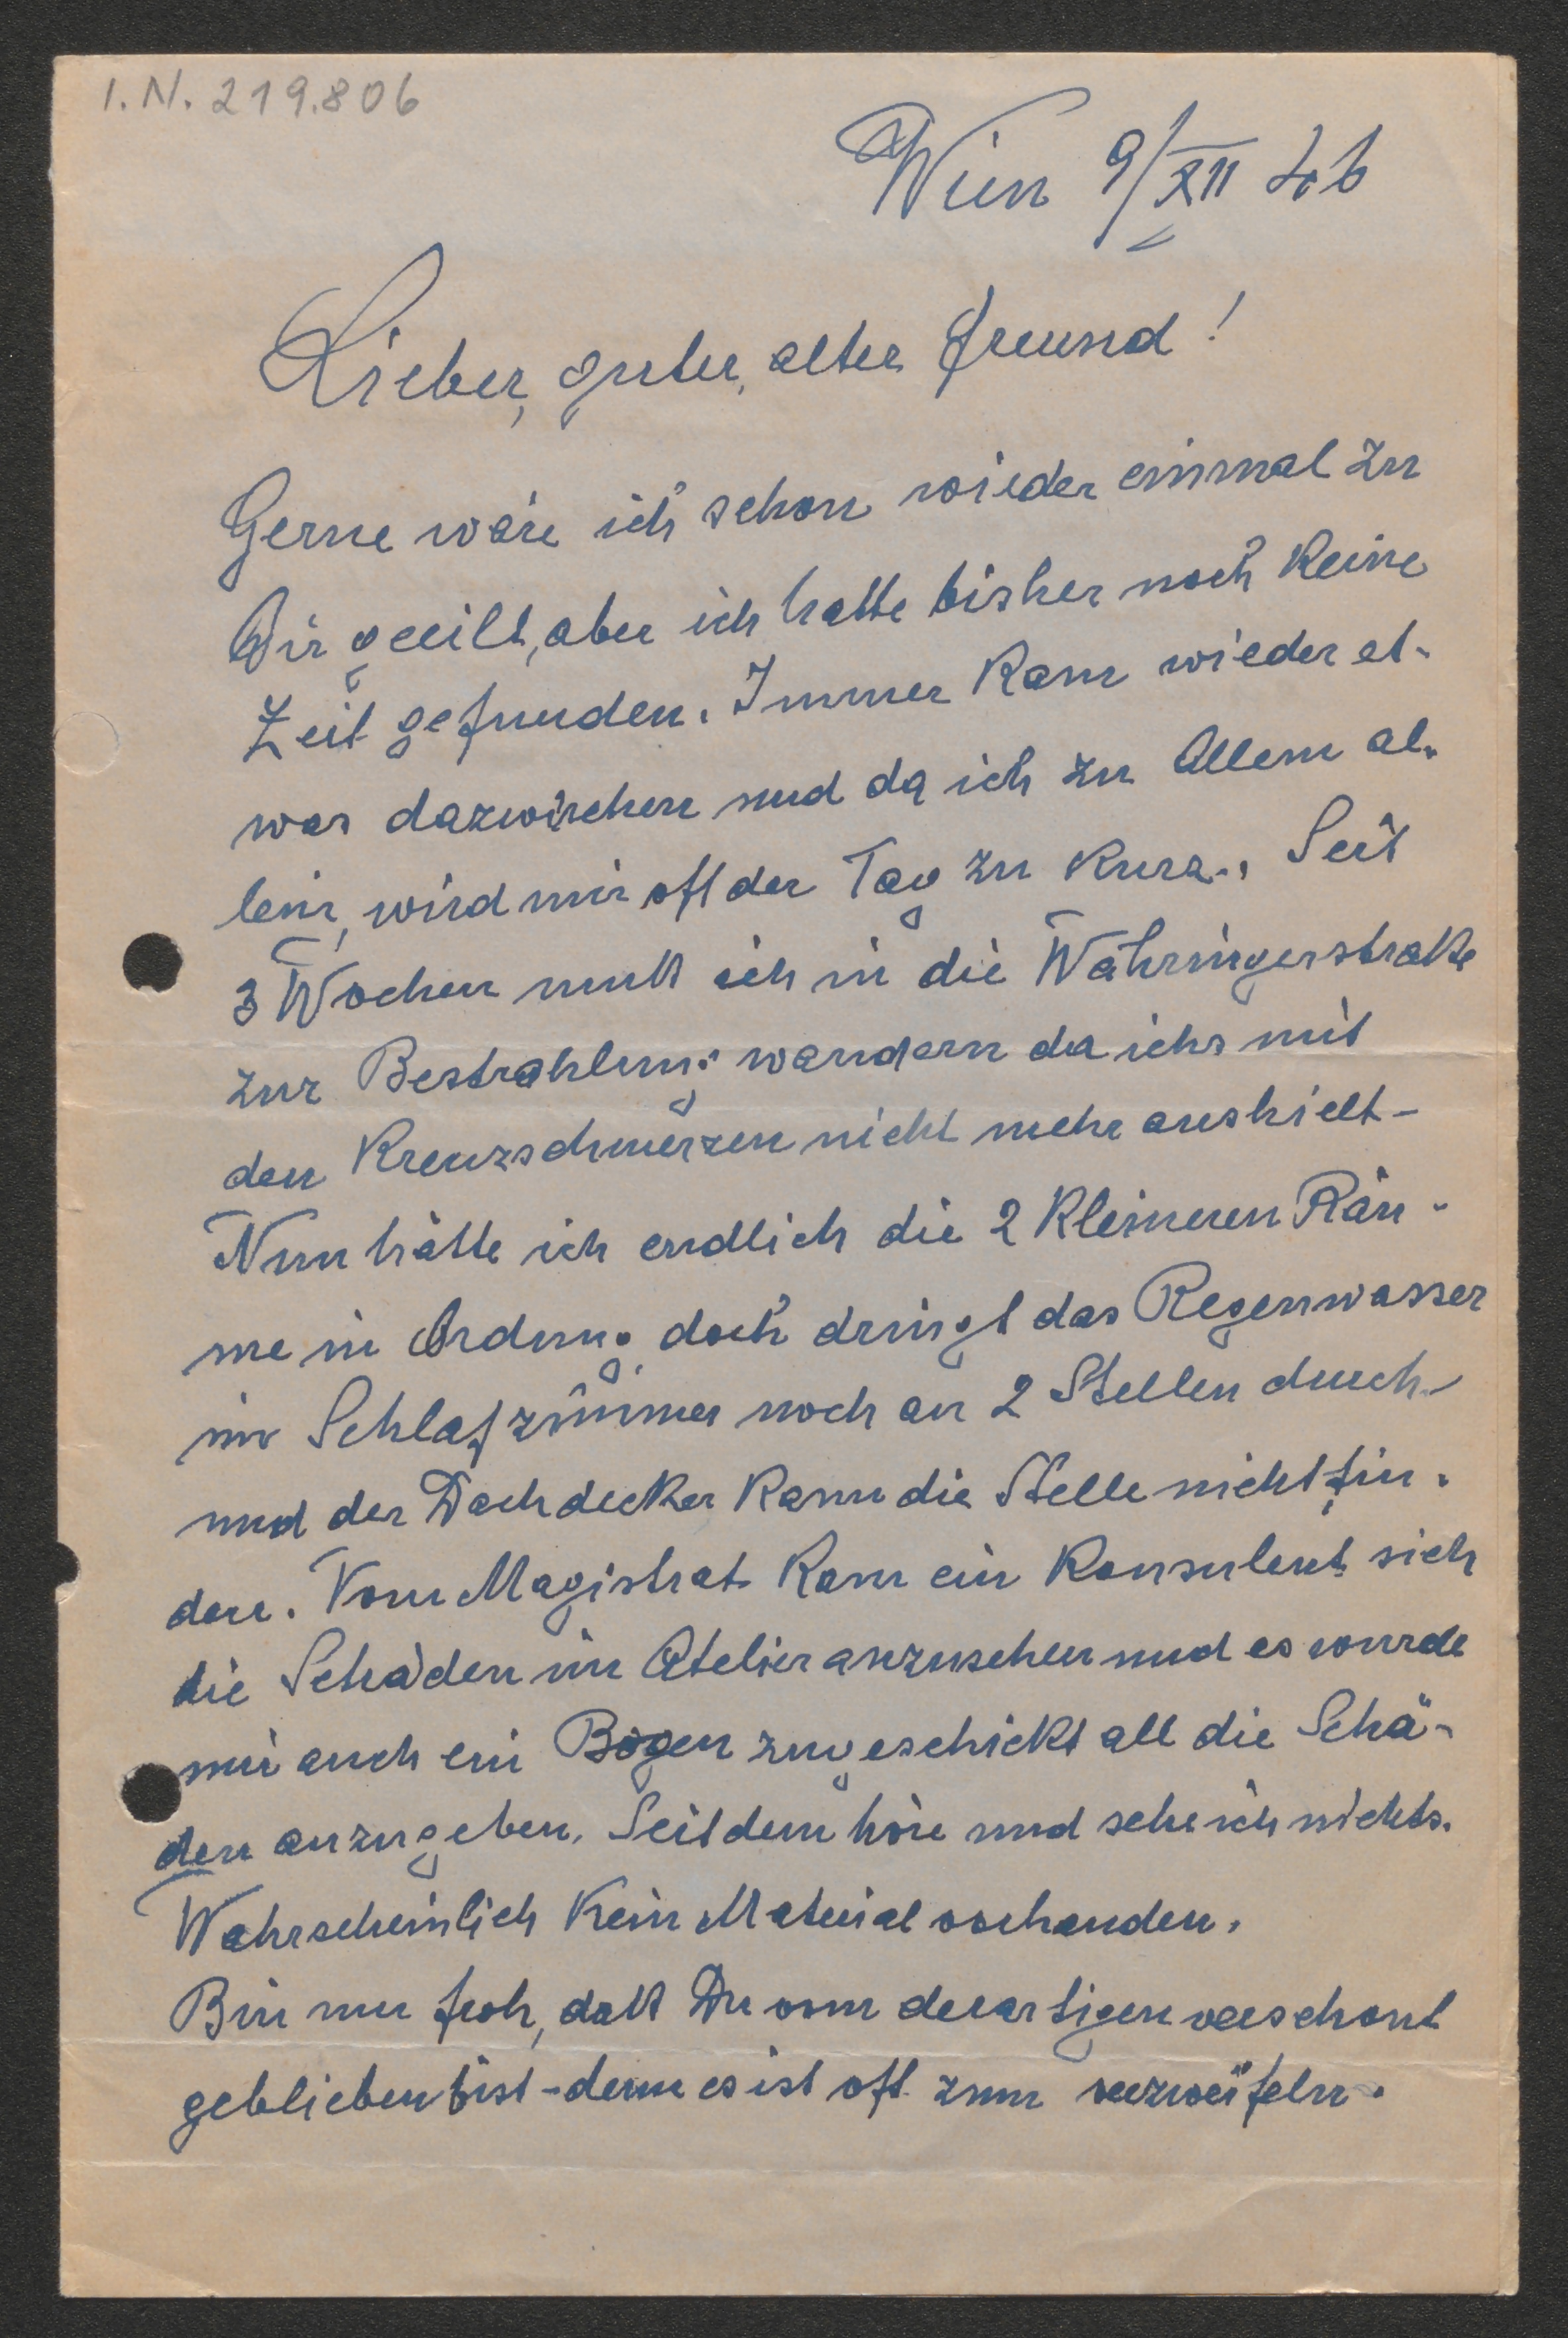 I.N. 219.806
Wien 9/XII 46
Lieber, guter, alter Freund!
Gerne wäre ich schon wieder einmal zu
Dir geeilt, aber ich hatte bisher noch keine
Zeit gefunden. Immer kam wieder et-
was dazwischen und da ich zu Allem al-
lein, wird mir oft der Tag zu kurz. Seit
3 Wochen muß ich in die Währingerstraße
zur Bestrahlung wandern da ichs mit
den Kreuzschmerzen nicht mehr aushielt-
Nun hätte ich endlich die 2 kleineren Räu-
me in Ordnung doch dringt das Regenwasser
im Schlafzimmer noch an 2 Stellen durch
und der Dachdecker kann die Stelle nicht fin-
den. Vom Magistrat kam ein Konsulent sich
die Schäden im Atelier anzusehen und es wurde
mir auch ein Bogen zugeschickt all die Schä-
den anzugeben. Seitdem höre und sehe ich nichts.
Wahrscheinlich kein Material vorhanden.
Bin nur froh, daß Du vom derartigen verschont
geblieben bist - denn es ist oft zum verzweifeln.